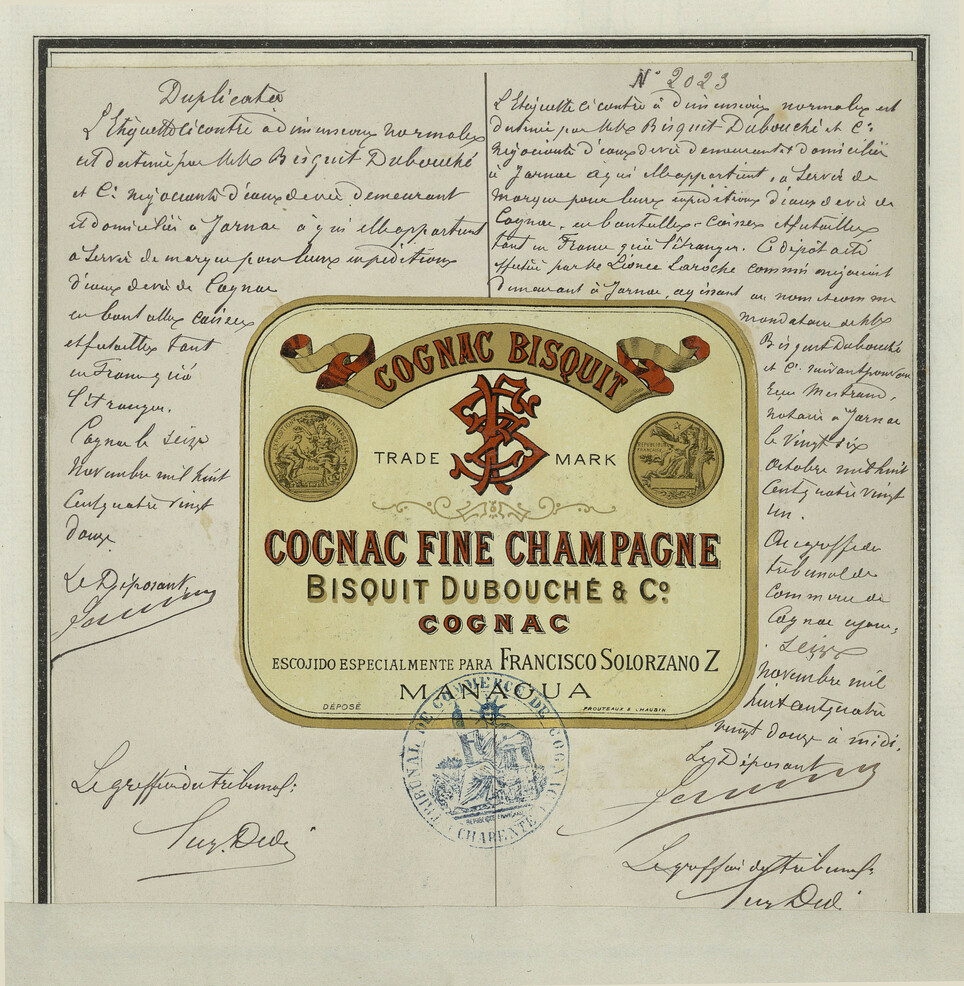 Duplicata
L'Etiquette ci contre à dimensions normales
est destinée par MM. Bisquit Dubouché
et Cie négociants d'eaux de vie demeurant
et domiciliés à Jarnac à qui elle appartient
à servir de marque pour leurs expéditions
d'eaux de vie de Cognac
en bouteilles caisses
et futailles tant
en France qu'à
l'étranger.
Cognac le seize
novembre mil huit
cent quatre vingt
douze
Le Déposant
Le greffier du tribunal:
N° 2023
L'Etiquette ci contre à dimensions normales est
destinée par MM. Bisquit-Dubouché et Cie
négociants d'eaux de vie demeurant et domiciliés
à Jarnac à qui elle appartient, à servir de
marque pour leurs expéditions d'eaux de vie de
Cognac, en bouteilles-caisses et futailles
tant en France qu'à l'étranger. Ce dépôt a été
effectué par Mr Léonce Laroche commis négociant
demeurant à Jarnac, agissant au nom et comme
mandataire de MM.
Bisquit Dubouché
et Cie suivant pouvoir
reçu Mestraud,
notaire à Jarnac
le vingt six
octobre mil huit
cent quatre vingt
un.
Au greffe du
tribunal de
Commerce de
Cognac ce jour,
seize
novembre mil
huit cent quatre
vingt douze à midi.
Le Déposant
Le greffier du tribunal:
COGNAC BISQUIT
TRADE MARK
COGNAC FINE CHAMPAGNE
BISQUIT DUBOUCHÉ & Co
COGNAC
ESCOJIDO ESPECIALMENTE PARA FRANCISCO SOLORZANO Z
MANAGUA
DÉPOSÉ
PROUTEAUX E. CHAUBIN
TRIBUNAL DE COMMERCE DE COGNAC
RÉPUBLIQUE FRANÇAISE
CHARENTE